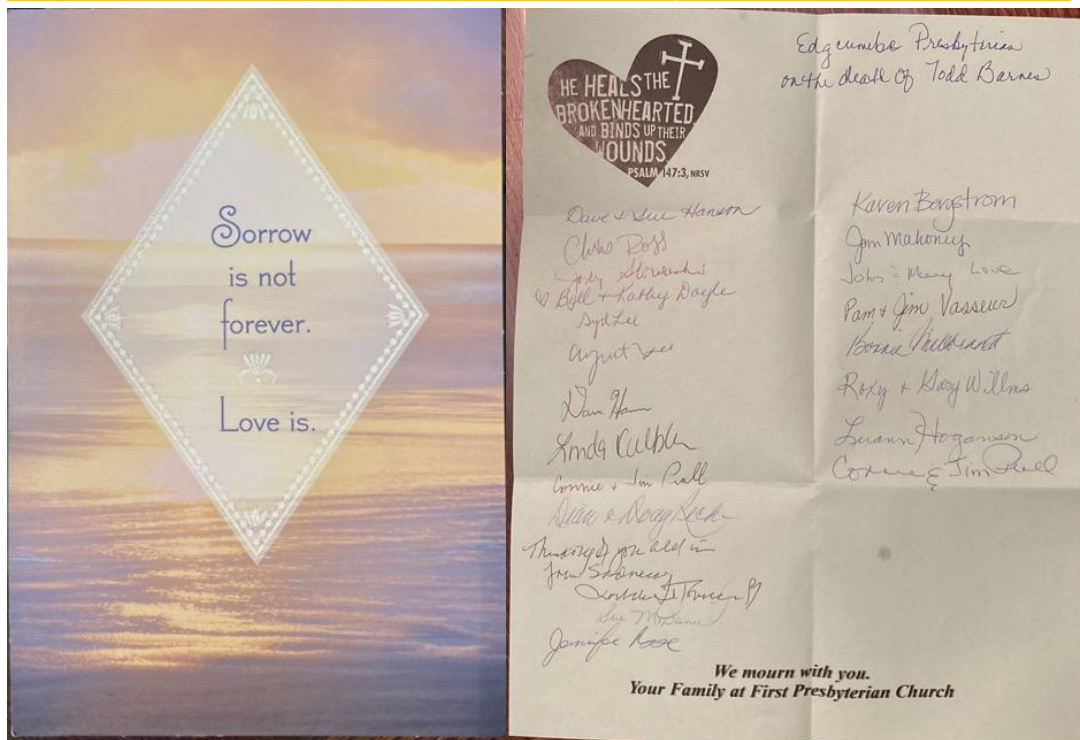 Sorrow
is not
forever.
Love is.
HE HEALS THE
BROKENHEARTED
AND BINDS UP THEIR
WOUNDS
PSALM 147:3, NRSV
Edgcumbe Presbyterian
on the death of Todd Barnes
Dave & Sue Hanson
Chris Ross
Bill + Kathy Doyle
Syd Lee
August Lee
Linda
Connie & Jim Prall
& Doug
Thinking of you all in
Sue
Jennifer Rose
Karen Bergstrom
Jim Mahoney
John & Mary Love
Pam & Jim Vasseur
Bonnie
Roxy & Gary Willms
Luann Hoganson
Connie & Jim Prall
We mourn with you.
Your Family at First Presbyterian Church